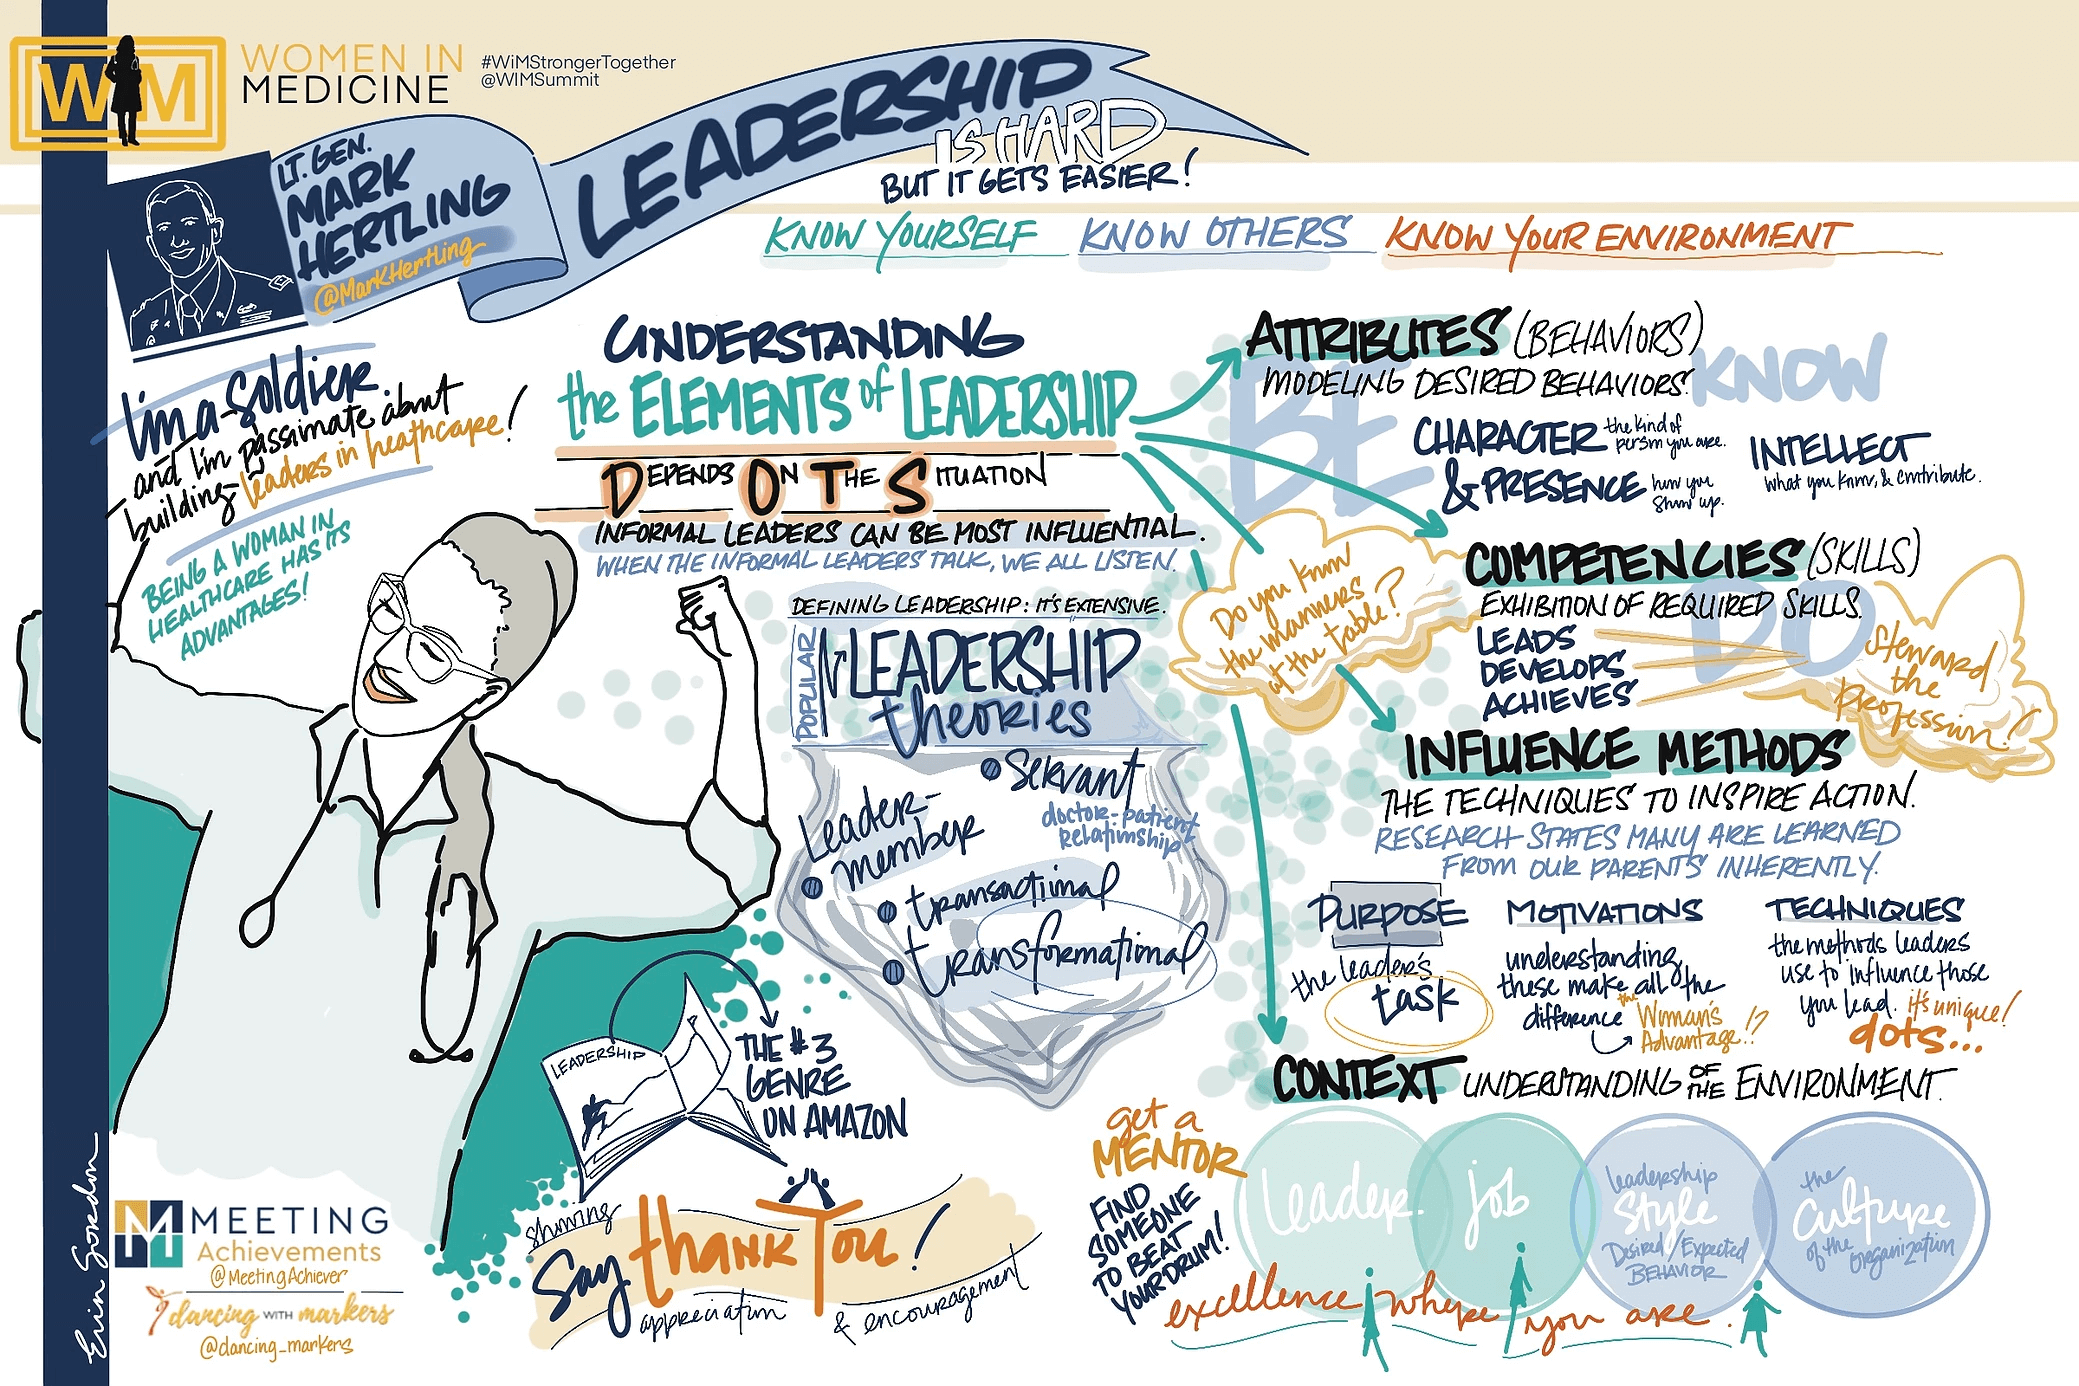 WIM
WOMEN IN
MEDICINE
#WiMStrongerTogether
@WIMSummit
LT. GEN.
MARK
HERTLING
@MarkHertling
LEADERSHIP
IS HARD
BUT IT GETS EASIER!
KNOW YOURSELF KNOW OTHERS KNOW YOUR ENVIRONMENT
I'm a soldier
and I'm passionate about
building leaders in heathcare!
BEING A WOMAN IN
HEALTHCARE HAS ITS
ADVANTAGES!
UNDERSTANDING
the ELEMENTS of LEADERSHIP
DEPENDS ON THE SITUATION
INFORMAL LEADERS CAN BE MOST INFLUENTIAL.
WHEN THE INFORMAL LEADERS TALK, WE ALL LISTEN.
DEFINING LEADERSHIP: IT'S EXTENSIVE.
POPULAR
LEADERSHIP
theories
Servant
doctor-patient
relationship
Leader-
member
transactional
transformational
LEADERSHIP
THE #3
GENRE
ON AMAZON
showing
Say thank You!
appreciation
& encouragement
ATTRIBUTES (BEHAVIORS)
MODELING DESIRED BEHAVIORS.
BE
KNOW
CHARACTER the kind of
person you are.
& PRESENCE how you
show up.
INTELLECT
what you know, & contribute.
Do you know
the manners
at the table?
COMPETENCIES (SKILLS)
EXHIBITION OF REQUIRED SKILLS.
DO
LEADS
DEVELOPS
ACHIEVES
Steward
the
Profession!
INFLUENCE METHODS
THE TECHNIQUES TO INSPIRE ACTION.
RESEARCH STATES MANY ARE LEARNED
FROM OUR PARENTS INHERENTLY.
PURPOSE
the leader's
task
MOTIVATIONS
understanding
these make all the
difference
the
Woman's
Advantage!?
TECHNIQUES
the methods leaders
use to influence those
you lead. it's unique!
dots...
CONTEXT UNDERSTANDING OF THE ENVIRONMENT.
get a
MENTOR
FIND
SOMEONE
TO BEAT
YOUR DRUM!
leader.
job
leadership
style
Desired/Expected
BEHAVIOR
the
culture
of the organization
excellence where you are.
Erin Gordon
M
MEETING
Achievements
@MeetingAchiever
dancing WITH markers
@dancing_markers